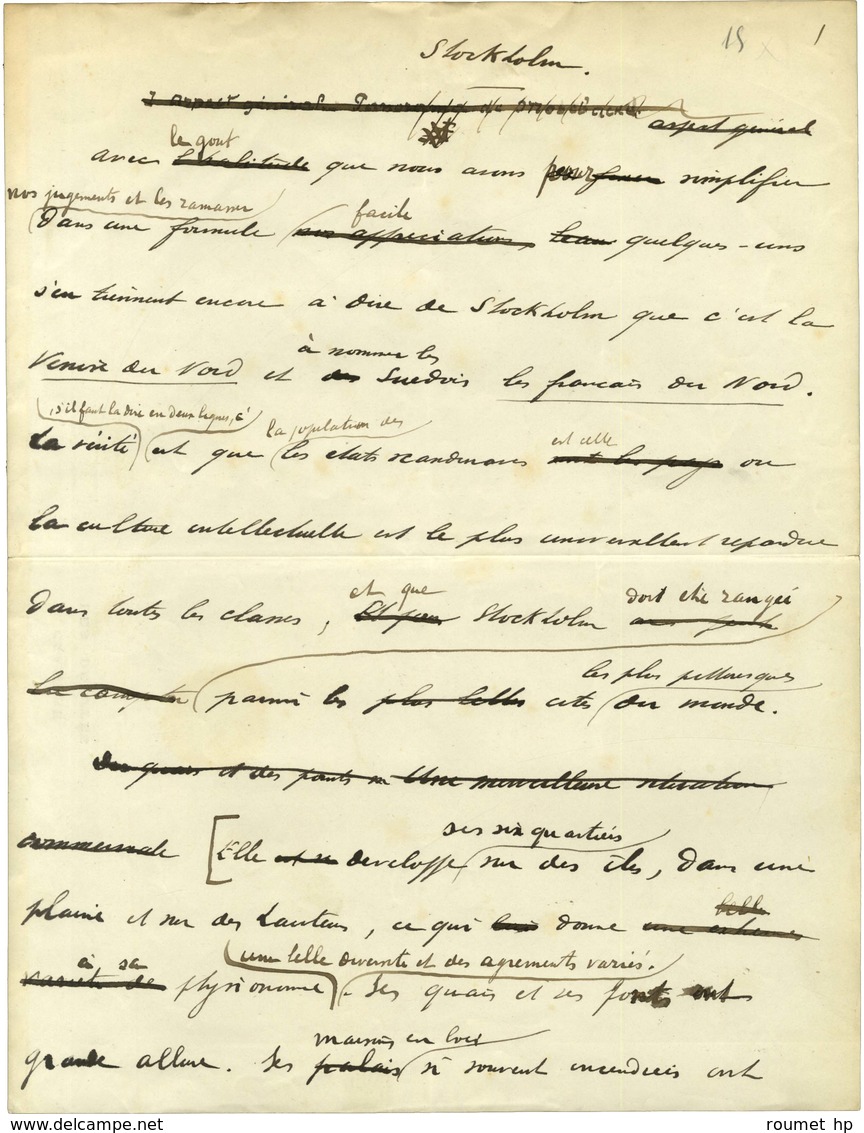 15 1
Stockholm.
aspect général
le gout
avec l'habitude que nous avons pour simplifier
nos jugements et les ramasser
facile
Dans une formule nos appreciations, quelques-uns
s'en tiennent encore à dire de Stockholm que c'est la
à nommer les
Venise du Nord et des Suedois les francais du Nord.
, s'il faut la dire en deux lignes, c'
la population des
La vérité est que les états scandinaves
est celle
sont les pays ou
la culture intellectuelle est le plus universellement repandue
et que
doit être rangée
Dans toutes les classes, Et pour Stockholm
les plus pittoresques
la compter parmi les plus belles cités du monde.
des quais et des ponts Une merveilleuse situation
ses six quartiers
commerciale [Elle developpe sur des îles, Dans une
belle
plaine et sur des hauteurs, ce qui lui donne une
une belle diversité et des agrements variés.
à sa
variété de physionomie. Ses quais et ses ponts ont
maisons en bois
grande allure. Ses palais si souvent incendiées ont
roumet hp